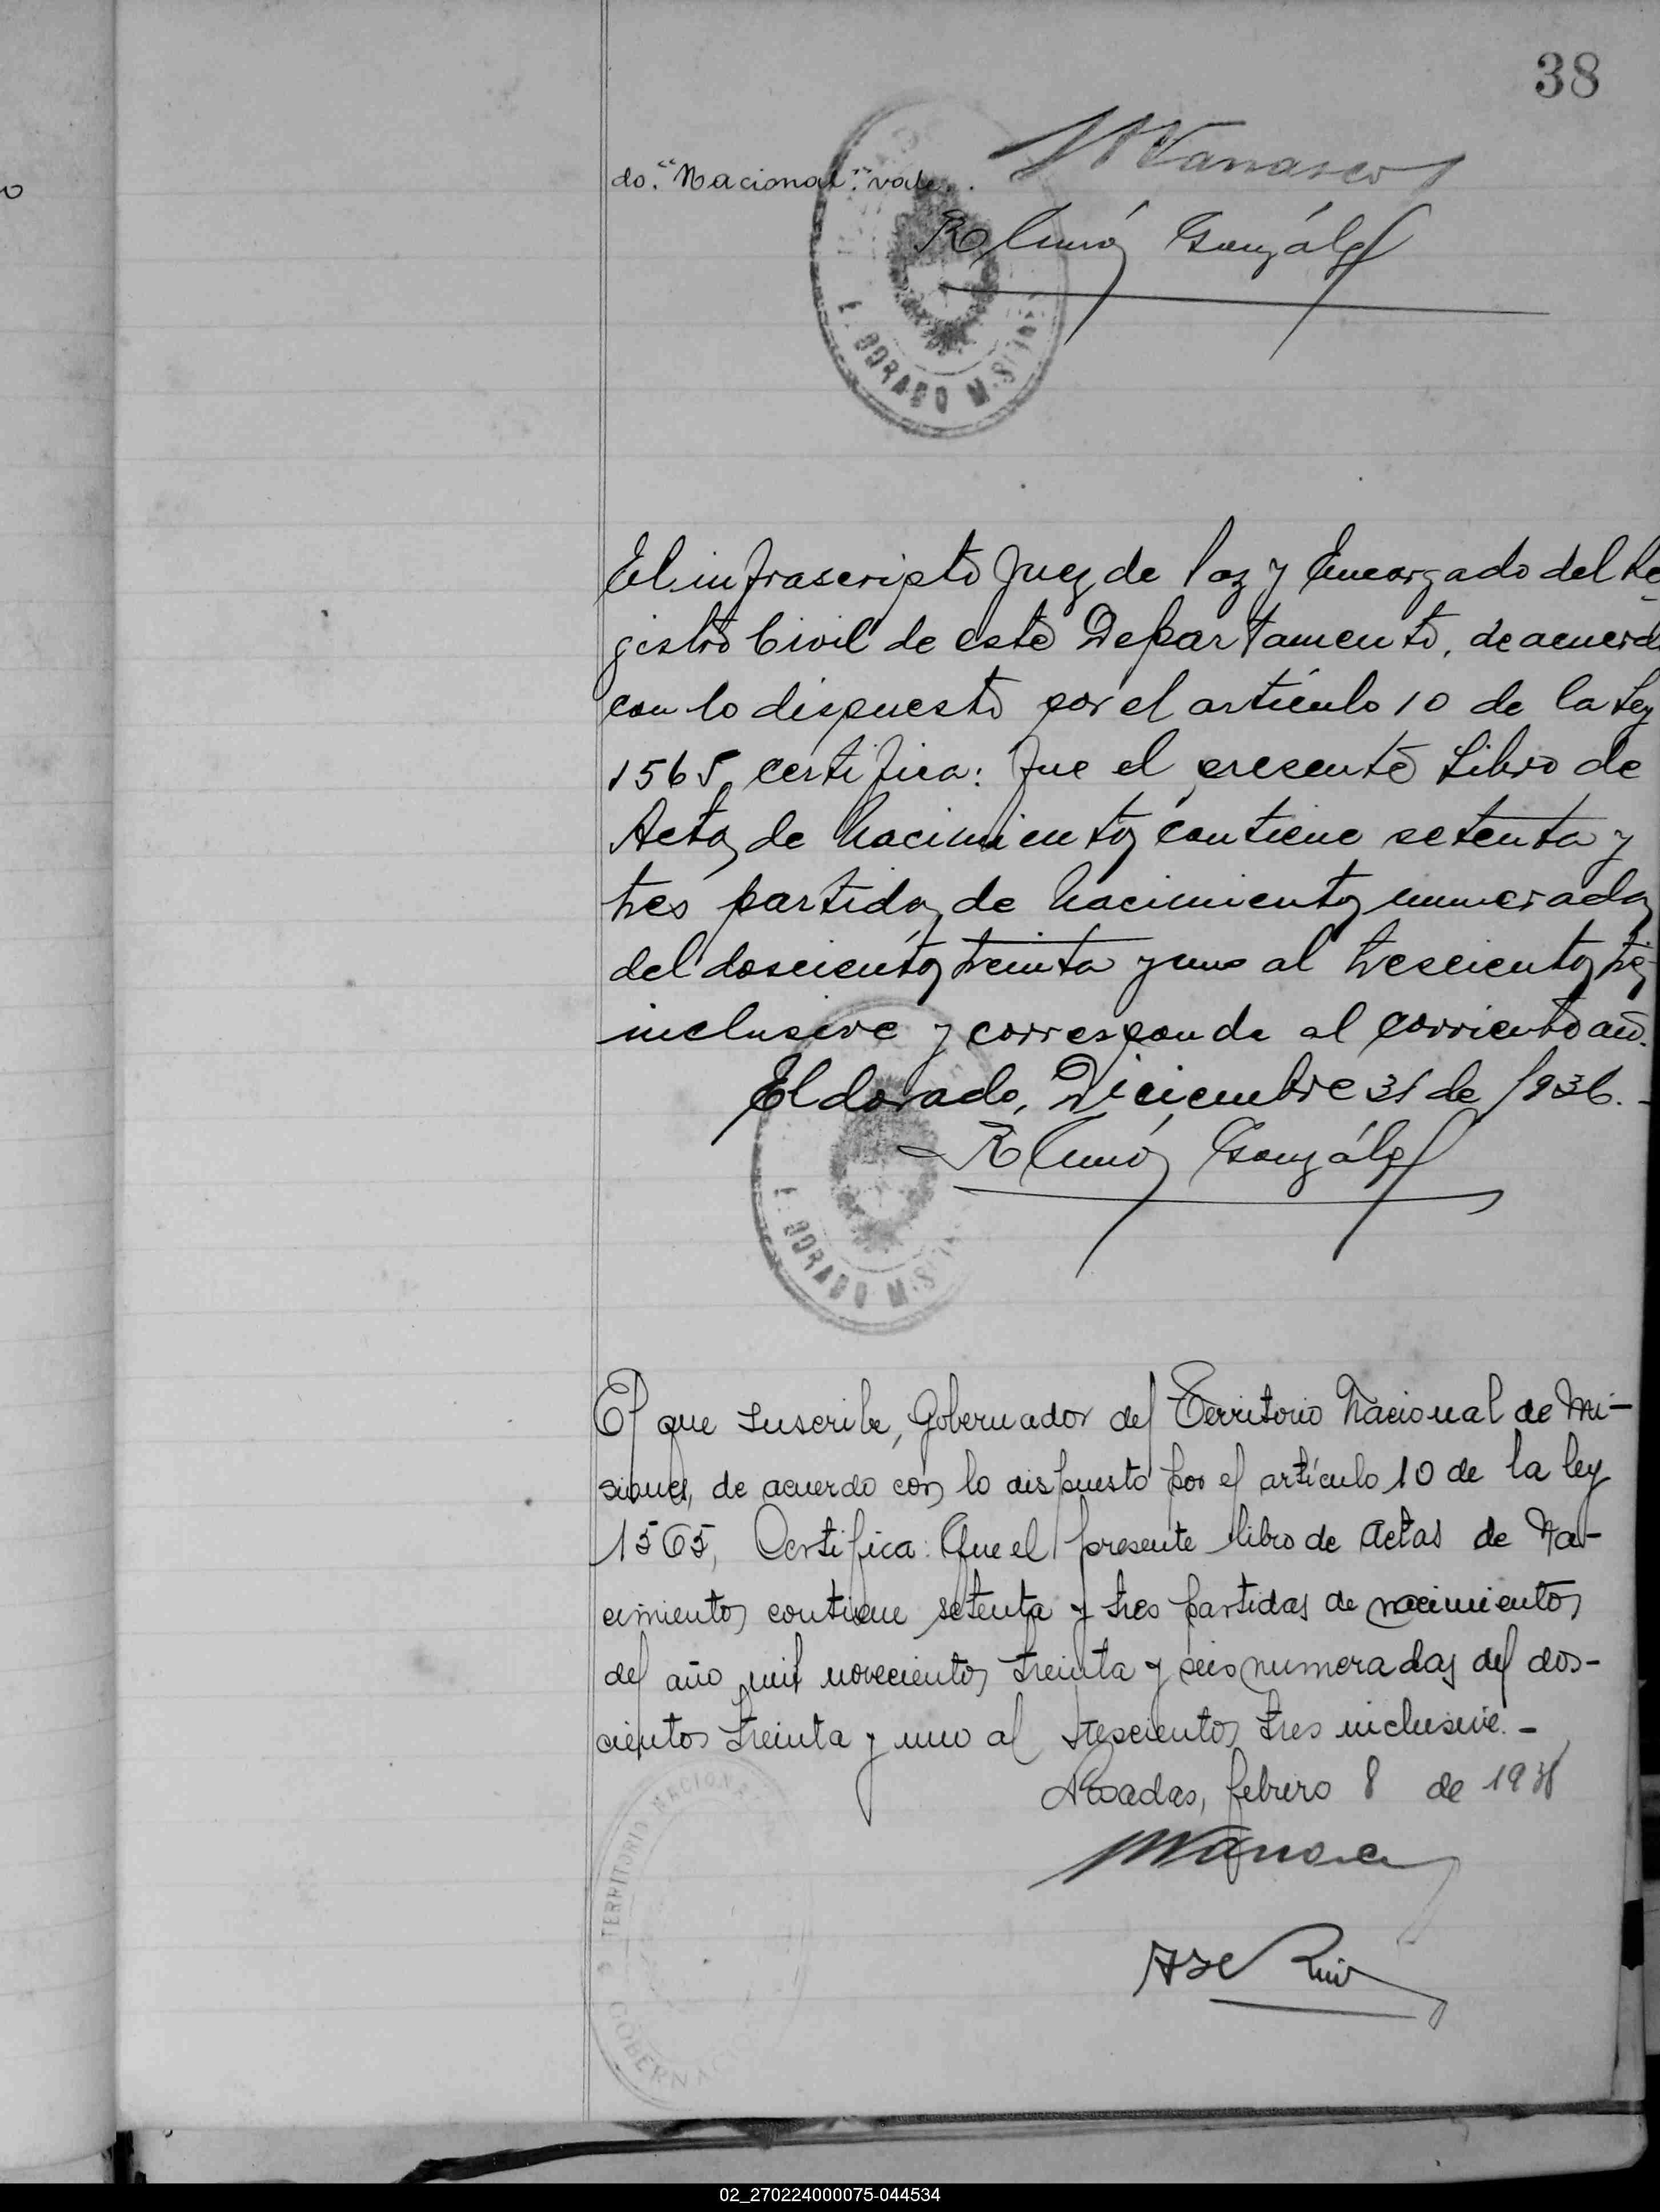 38
do. "Nacional": vale..
González
EL DORADO MISIONES
El infrascripto Juez de Paz y Encargado del Re
gistro Civil de este Departamento, de acuerdo
con lo dispuesto por el artículo 10 de la Ley
1565, certifica: Que el presente Libro de
Actas de Nacimientos contiene setenta y
tres partidas de nacimientos numeradas
del doscientos treinta y uno al trescientos tres
inclusive y corresponde al corriente año.
Eldorado, Diciembre 31 de 1936.-
González
EL DORADO MISIONES
El que suscribe, Gobernador del Territorio Nacional de Mi-
siones, de acuerdo con lo dispuesto por el artículo 10 de la ley
1565, Certifica: Que el presente libro de actas de Na-
cimientos contiene setenta y tres partidas de nacimientos
del año mil novecientos treinta y seis numeradas del dos-
cientos treinta y uno al trescientos tres inclusive.-
Posadas, febrero 8 de 193
TERRITORIO NACIONAL
GOBERNACION
Ruiz
02_270224000075-044534